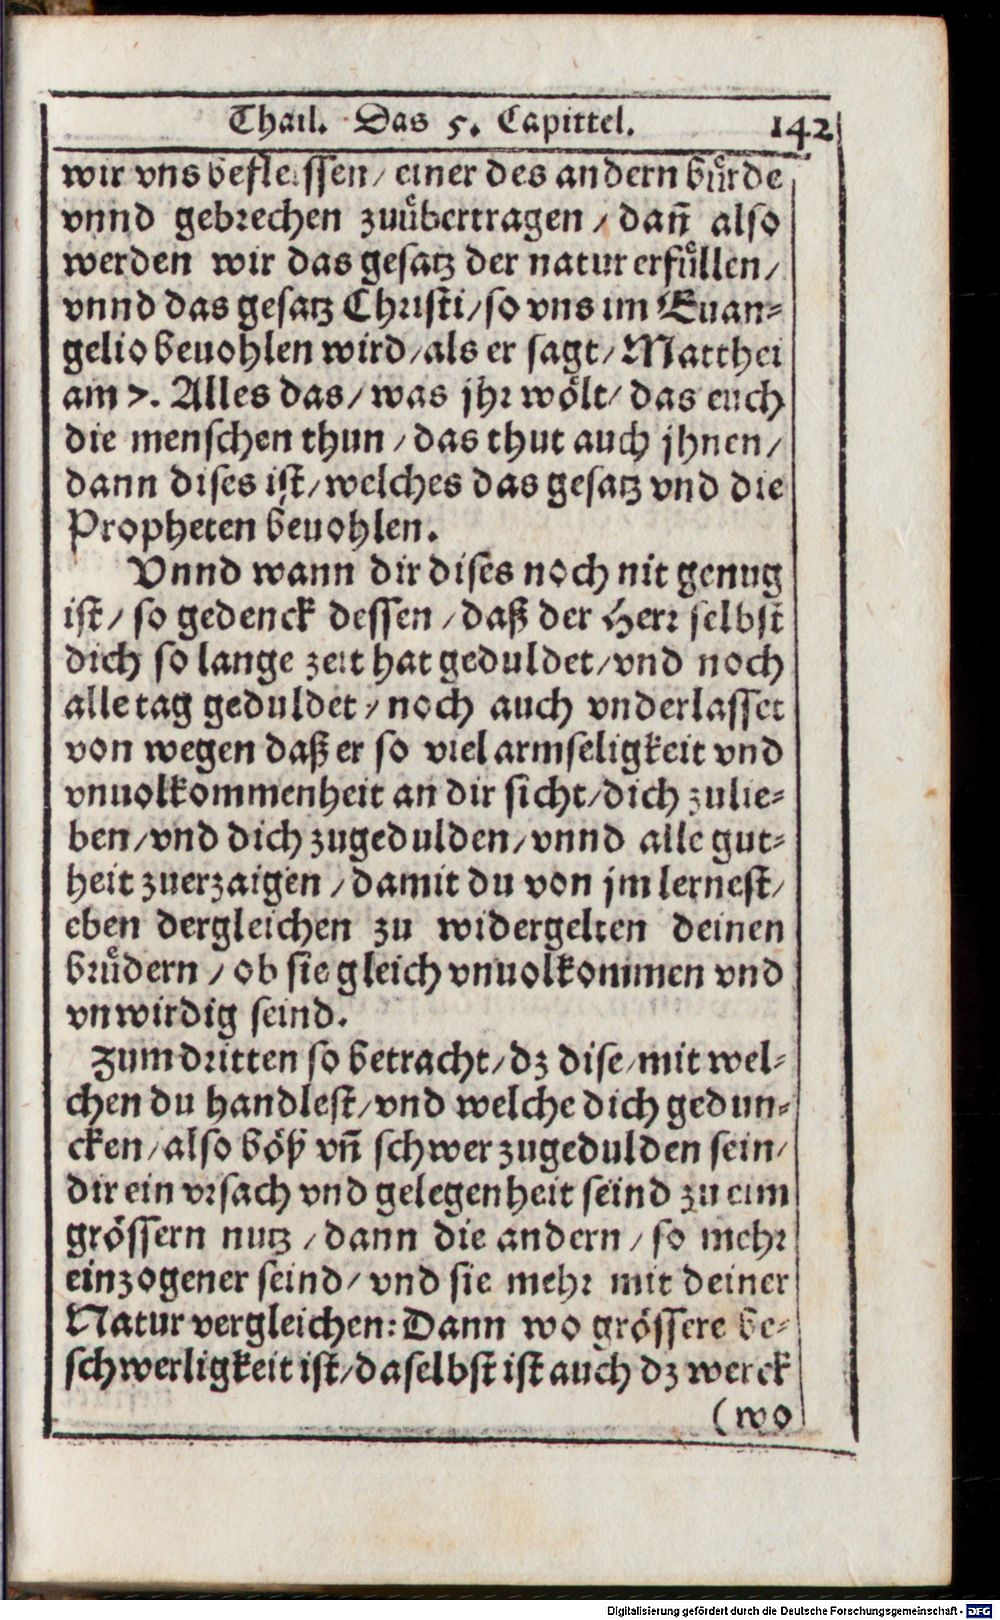 Thail. Das 5. Capittel. 142
wir vns befleissen/ einer des andern bůrde
vnnd gebrechen zuůbertragen / dañ also
werden wir das gesatz der natur erfůllen/
vnnd das gesatz Christi/so vns im Euan-
gelio beuohlen wird/als er sagt/ Matthei
am 7. Alles das/ was jhr wölt/ das euch
die menschen thun / das thut auch jhnen/
dann dises ist/welches das gesatz vnd die
Propheten beuohlen.
Vnnd wann dir dises noch nit genug
ist/ so gedenck dessen /daß der Herr selbst
dich so lange zeit hat geduldet/vnd noch
alle tag geduldet / noch auch vnderlasset
von wegen daß er so viel armseligkeit vnd
vnuolkommenheit an dir sicht/dich zulie-
ben/vnd dich zugedulden/vnnd alle gut-
heit zuerzaigen /damit du von jm lernest/
eben dergleichen zu widergelten deinen
brůdern /ob sie gleich vnuolkommen vnd
vnwirdig seind.
Zum dritten so betracht/dz dise/mit wel-
chen du handlest/vnd welche dich gedun-
cken/also böß vñ schwer zugedulden sein/
dir ein vrsach vnd gelegenheit seind zu eim
grössern nutz /dann die andern / so mehr
einzogener seind/ vnd sie mehr mit deiner
Natur vergleichen: Dann wo grössere be-
schwerligkeit ist/daselbst ist auch dz werck
(wo
Digitalisierung gefördert durch die Deutsche Forschungsgemeinschaft - DFG